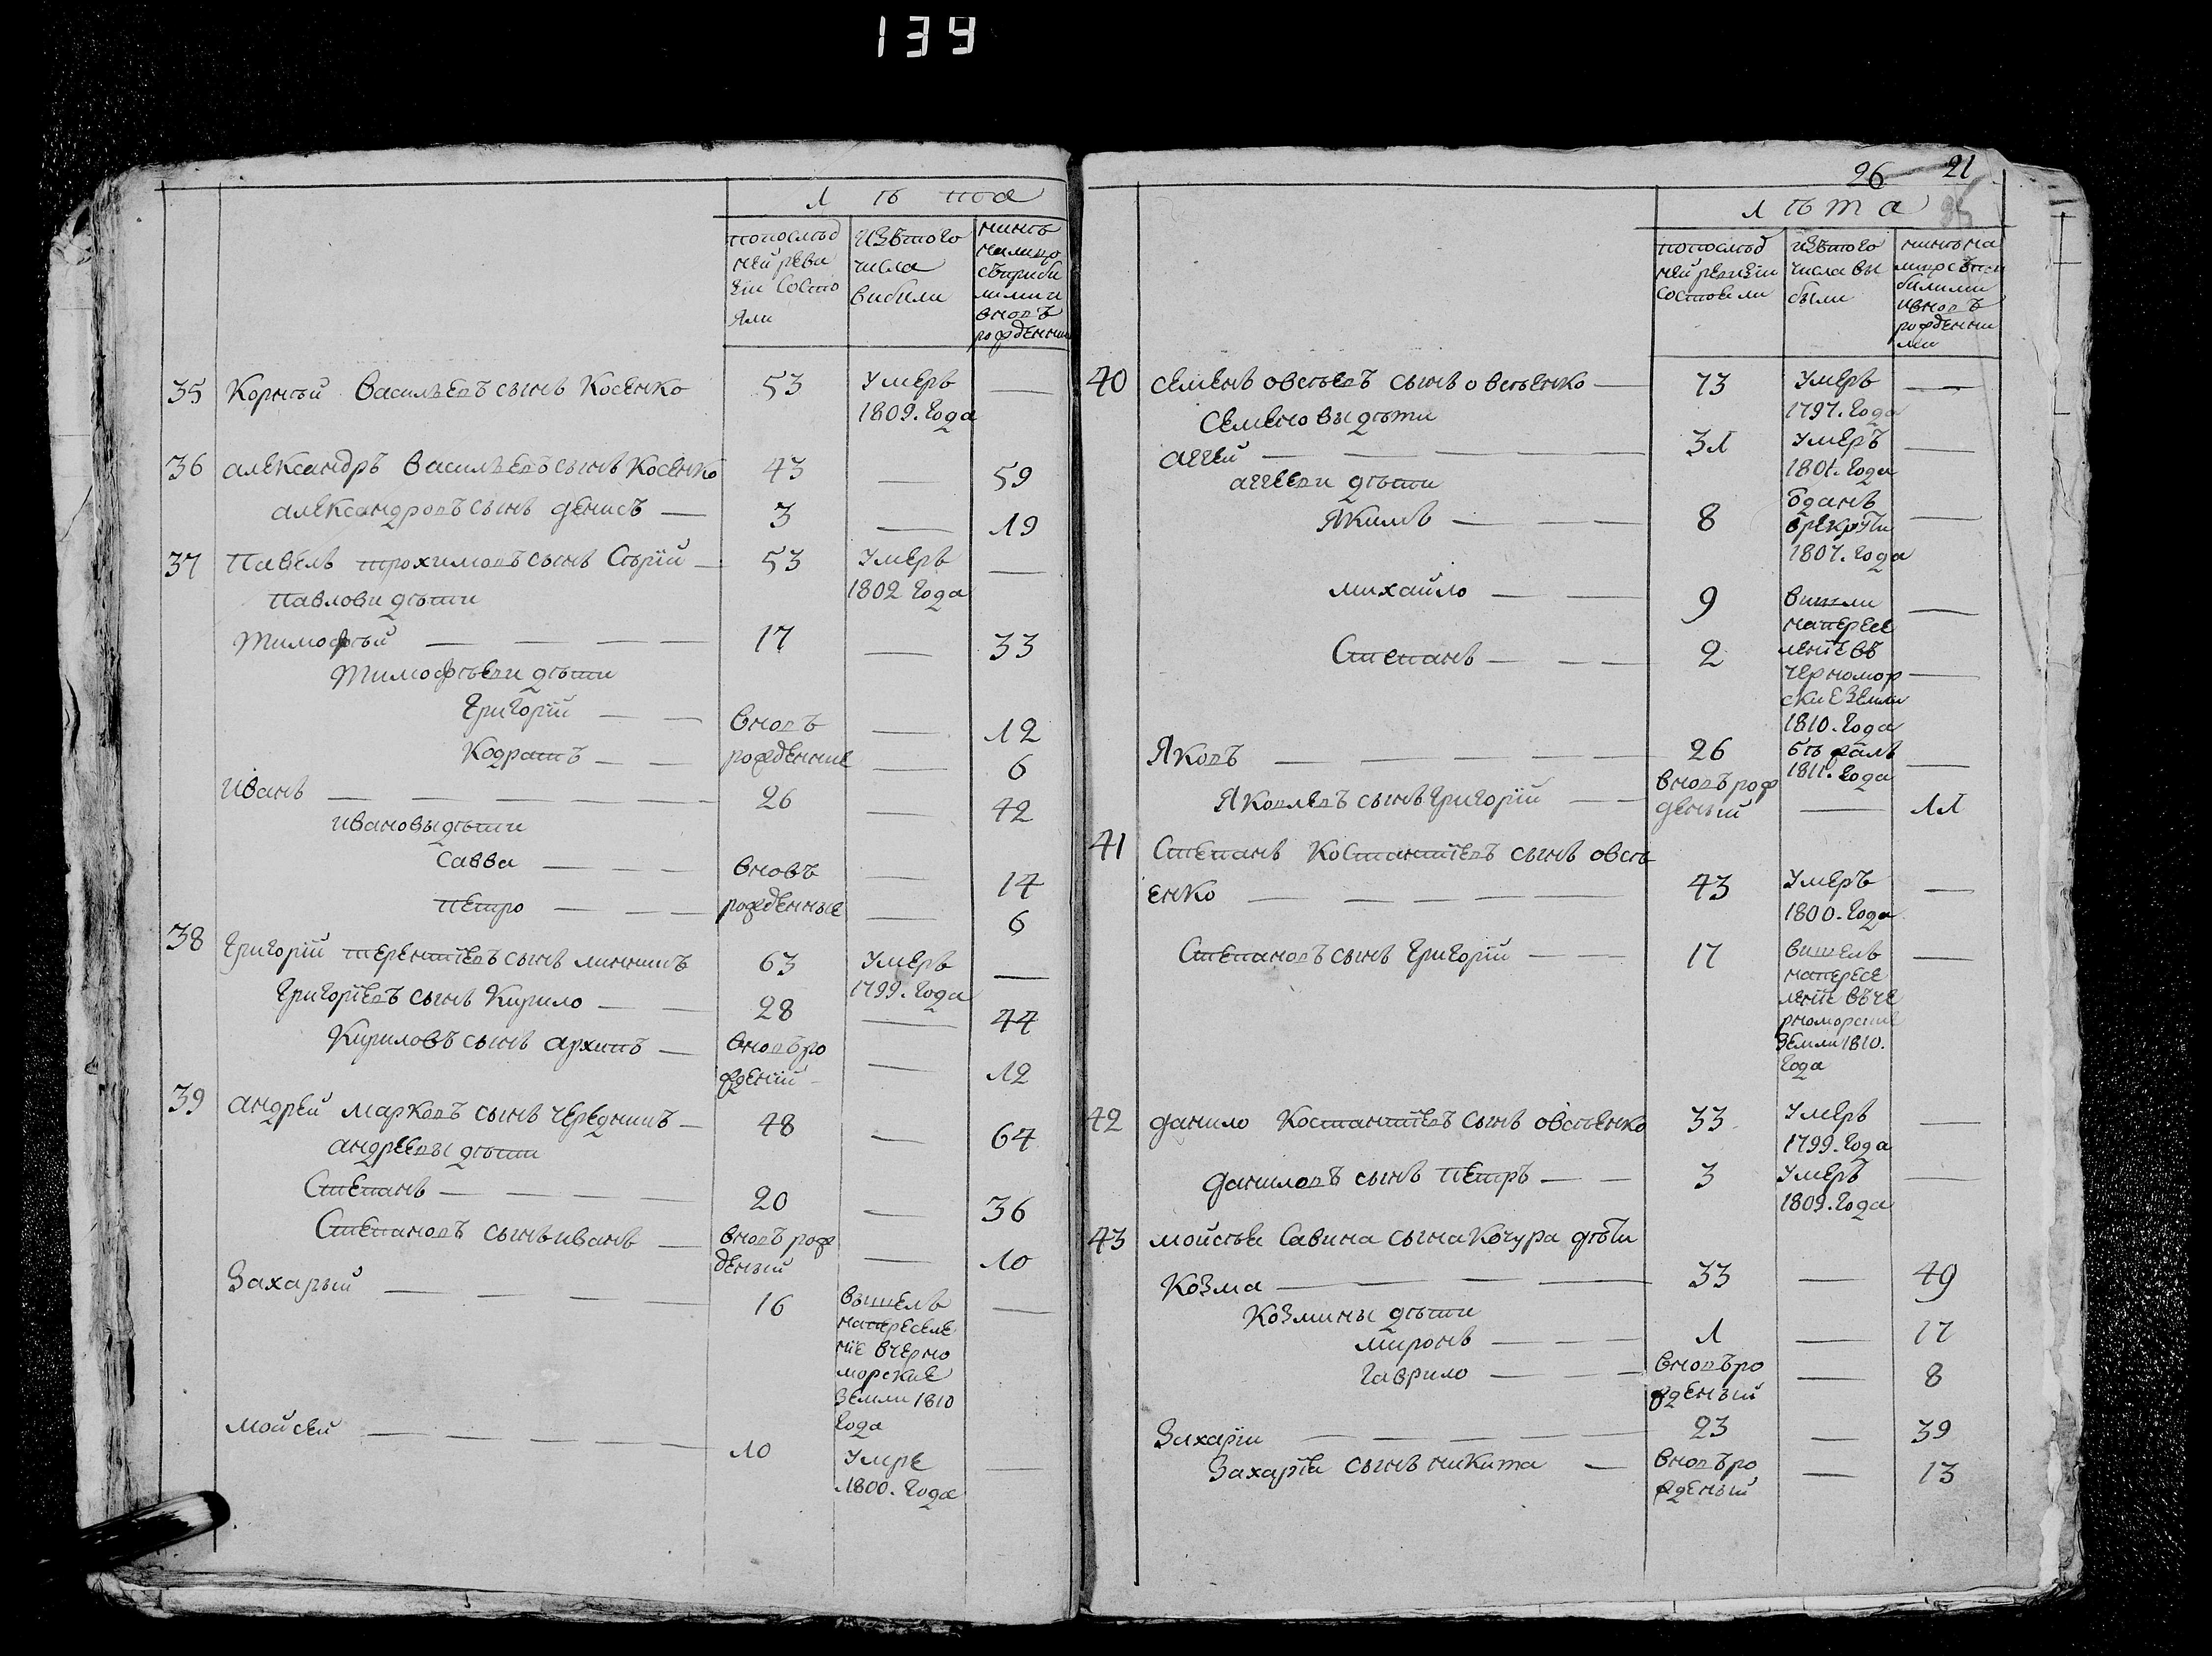 139
Лѣта
попослѣд нѣй реви зіи состо яли
изъ того числа вибили
нинѣ налицо съприби лими и вновь рожденними
35 Корнѣй Васильевъ сынъ Косенко 53 Умеръ —
1809. года
36 александръ Васильевъ сынъ Косенко 43 — 59
александровъ сынъ денисъ — 3 — 19
37 Павелъ трохимовъ сынъ Сѣрій — 53 Умеръ —
Павлови дѣти 1802 года
Тимофѣй — — — — 17 — 33
Тимофѣеви дѣти
григорій — — вновь — 12
Кодратъ — — рожденние — 6
Иванъ — — — — — — 26 — 42
ивановы дѣти
савва — — — вновъ — 14
петро — — — рожденные — 6
38 григорій терентіевъ сынъ линникъ 63 Умеръ —
1799. года
григоріевъ сынъ Кирило — — 28 — 44
Кириловъ сынъ архипъ — вновъ ро — 12
жденій
39 андрей марковъ сынъ чередникъ — 48 — 64
андреевы дѣти
Степанъ — — — — 20 — 36
Степановъ сынъ иванъ — вновъ рож — 10
деный
Захарій — — — — — 16 вышелъ —
напереселе
ніе вчерно
морские
земли 1810
года
мойсей — — — — — 10 Умре —
1800. года
26 21
25
Лѣта
попослѣд ней ревизіи состояли
изъ того числа вы были
нинѣ на лицо съпри билими и вновъ рожденни ми
40 семенъ овсѣевъ сынъ овсѣенко — 73 Умеръ —
1797. года
Семеновы дѣти
аггей — — — — — 31 Умеръ —
1801. года
аггееви дѣти
Якимъ — — — 8 отданъ —
врекруты
1807. года
михайло — — 9 вишли —
напересе
Степанъ — — — 2 леніе въ
черномор —
ские земли
1810. года
Яковъ — — — — — 26 бѣжалъ —
1811. года
Яковлевъ сынъ григорій — — вновъ рож — 11
деный
41 Степанъ Костантіевъ сынъ овсѣ
енко — — — — — 43 Умеръ —
1800. года
Степановъ сынъ григорій — — 17 вишелъ —
напересе
леніе въ че
рноморские
земли 1810.
года
42 данило Костантіевъ сынъ овсѣенко 33 Умеръ —
1799. года
даниловъ сынъ петръ — — 3 Умеръ —
1809. года
43 мойсѣя Савина сына Кочура дѣти
Козма — — — — 33 — 49
Козмины дѣти
миронъ — — — 1 — 17
гаврило — — — вновъ ро — 8
жденый
Захарій — — — — — 23 — 39
Захаріи сынъ никита — вновъ ро — 13
жденый